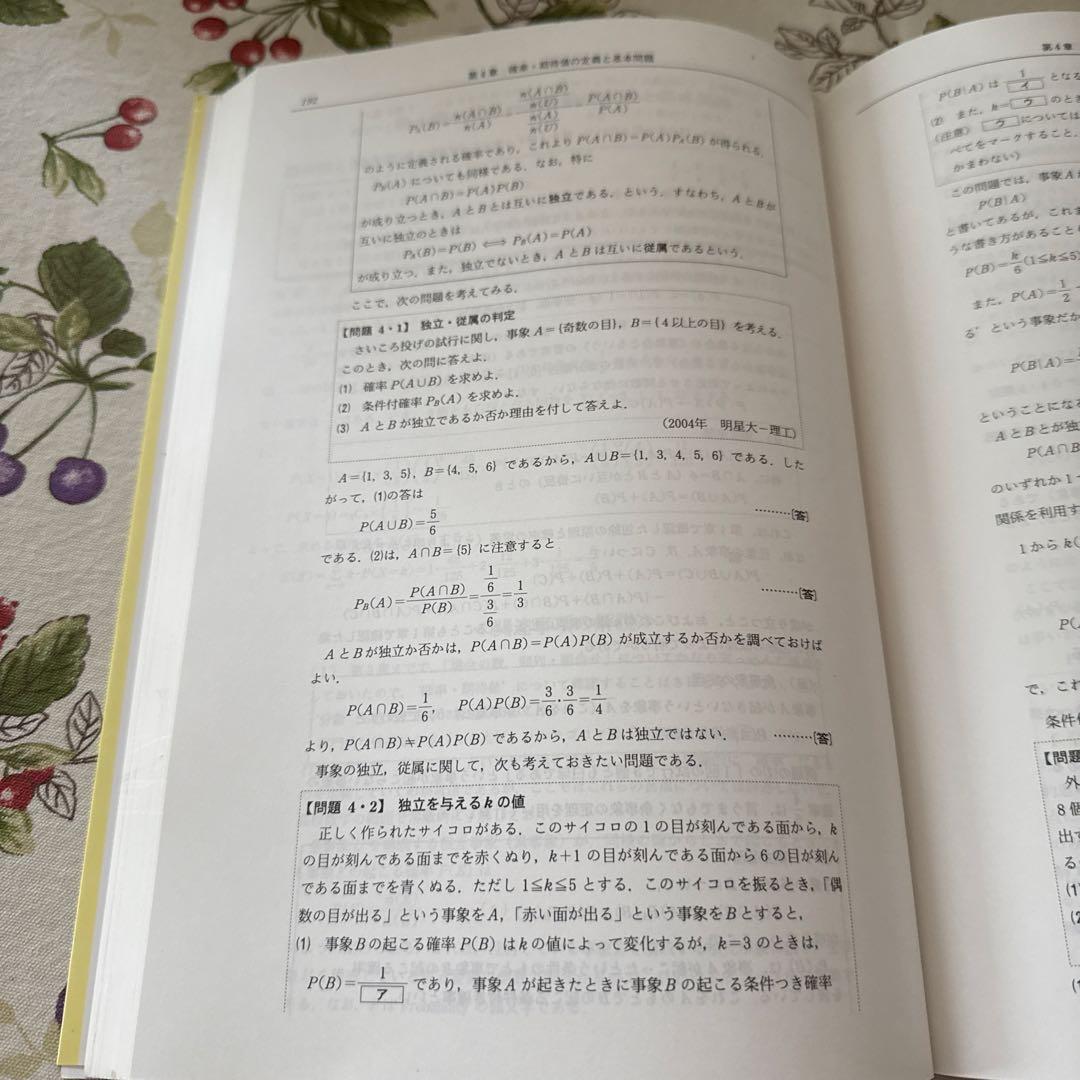 192
第4章 確率・期待値の定義と基本問題
P_A(B)=\frac{n(A∩B)}{n(A)}=\frac{\frac{n(A∩B)}{n(U)}}{\frac{n(A)}{n(U)}}=\frac{P(A∩B)}{P(A)}
のように定義される確率であり，これより P(A∩B)=P(A)P_A(B) が得られる．
P_B(A) についても同様である．なお，特に
P(A∩B)=P(A)P(B)
が成り立つとき，AとBとは互いに独立である，という．すなわち，AとBが
互いに独立のときは
P_A(B)=P(B) ⟺ P_B(A)=P(A)
が成り立つ．また，独立でないとき，AとBは互いに従属であるという．
ここで，次の問題を考えてみる．
【問題 4・1】 独立・従属の判定
さいころ投げの試行に関し，事象 A={奇数の目}，B={4以上の目} を考える．
このとき，次の問に答えよ．
(1) 確率 P(A∪B) を求めよ．
(2) 条件付確率 P_B(A) を求めよ．
(3) AとBが独立であるか否か理由を付して答えよ．
(2004年 明星大－理工)
A={1, 3, 5}，B={4, 5, 6} であるから，A∪B={1, 3, 4, 5, 6} である．した
がって，(1)の答は
P(A∪B)=\frac{5}{6} ………[答]
である．(2)は，A∩B={5} に注意すると
P_B(A)=\frac{P(A∩B)}{P(B)}=\frac{\frac{1}{6}}{\frac{3}{6}}=\frac{1}{3} ………[答]
AとBが独立か否かは，P(A∩B)=P(A)P(B) が成立するか否かを調べておけば
よい．
P(A∩B)=\frac{1}{6}， P(A)P(B)=\frac{3}{6}·\frac{3}{6}=\frac{1}{4}
より，P(A∩B)≠P(A)P(B) であるから，AとBは独立ではない． ………[答]
事象の独立，従属に関して，次も考えておきたい問題である．
【問題 4・2】 独立を与えるkの値
正しく作られたサイコロがある．このサイコロの1の目が刻んである面から，k
の目が刻んである面までを赤くぬり，k+1の目が刻んである面から6の目が刻ん
である面までを青くぬる．ただし 1≦k≦5 とする．このサイコロを振るとき，「偶
数の目が出る」という事象をA，「赤い面が出る」という事象をBとすると，
(1) 事象Bの起こる確率 P(B) はkの値によって変化するが，k=3のときは，
P(B)=\frac{1}{ア} であり，事象Aが起きたときに事象Bの起こる条件つき確率
第4章
P(B|A) は \frac{1}{イ} となる
(2) また，k=ウ のとき
(注意) ウ については
べてをマークすること．
かまわない)
この問題では，事象A
P(B|A)
と書いてあるが，これま
うな書き方があること
P(B)=\frac{k}{6}(1≦k≦5)
また，P(A)=\frac{1}{2}
る'という事象だか
P(B|A)=
ということになる
AとBとが独
P(A∩B
のいずれか1
関係を利用す
1からk(
P(A
で，これ
条件
【問題
外
8個
出す
る．
(1)
(2)
(1